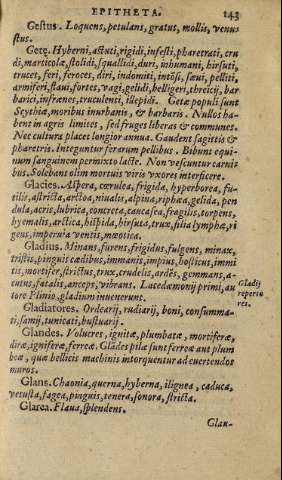 EPITHETA. 143
Gestus. Loquens, petulans, gratus, mollis, venu-
stus.
Getę. Hyberni, astuti, rigidi, infesti, pharetrati, cru
di, marticolæ, stolidi, squallidi, duri, inhumani, hirsuti,
truces, feri, feroces, diri, indomiti, intōsi, sæui, pelliti,
armiferi, flaui, fortes, vagi, gelidi, belligeri, threicij, bar
barici, infrænes, truculenti, illepidi. Getæ populi sunt
Scythia, moribus inurbanis, & barbaris. Nullos ha-
bent in agris limites, sed fruges liberas & communes.
Nec cultura placet longior annua. Gaudent sagittis &
pharetris. Integuntur ferarum pellibus. Bibunt equi-
num sanguinem permixto lacte. Non vescuntur carni-
bus. Solebant olim mortuis viris vxores interficere.
Glacies. Aspera, cœrulea, frigida, hyperborea, fu-
tilis, astricta, arctoa, niualis, alpina, riphæa, gelida, pen
dula, acris, lubrica, concreta, caucasea, fragilis, torpens,
hyemalis, arctica, hispida, hirsuta, trux, filia lymphæ, ri
gens, imperuia ventis, mæotica.
Gladius. Minans, furens, frigidus, fulgens, minax,
tristis, pinguis cædibus, immanis, impius, hosticus, immi
tis, mortifer, strictus, trux, crudelis, ardēs, gemmans, a-
cutus, fatalis, anceps, vibrans. Lacedæmonij primi, au
tore Plinio, gladium inuenerunt.
Gladij
reperto
res.
Gladiatores. Ordearij, rudiarij, boni, consumma-
ti, samij, tunicati, bustuarij.
Glandes. Volucres, ignitæ, plumbatæ, mortiferæ,
diræ, igniferæ, ferreæ. Glādes pilæ sunt ferreæ aut plum
beæ, quæ bellicis machinis intorquentur ad euertendos
muros.
Glans. Chaonia, querna, hyberna, ilignea, caduca,
vetusta, fagea, pinguis, tenera, sonora, stricta.
Glarea. Flaua, splendens.
Glau-